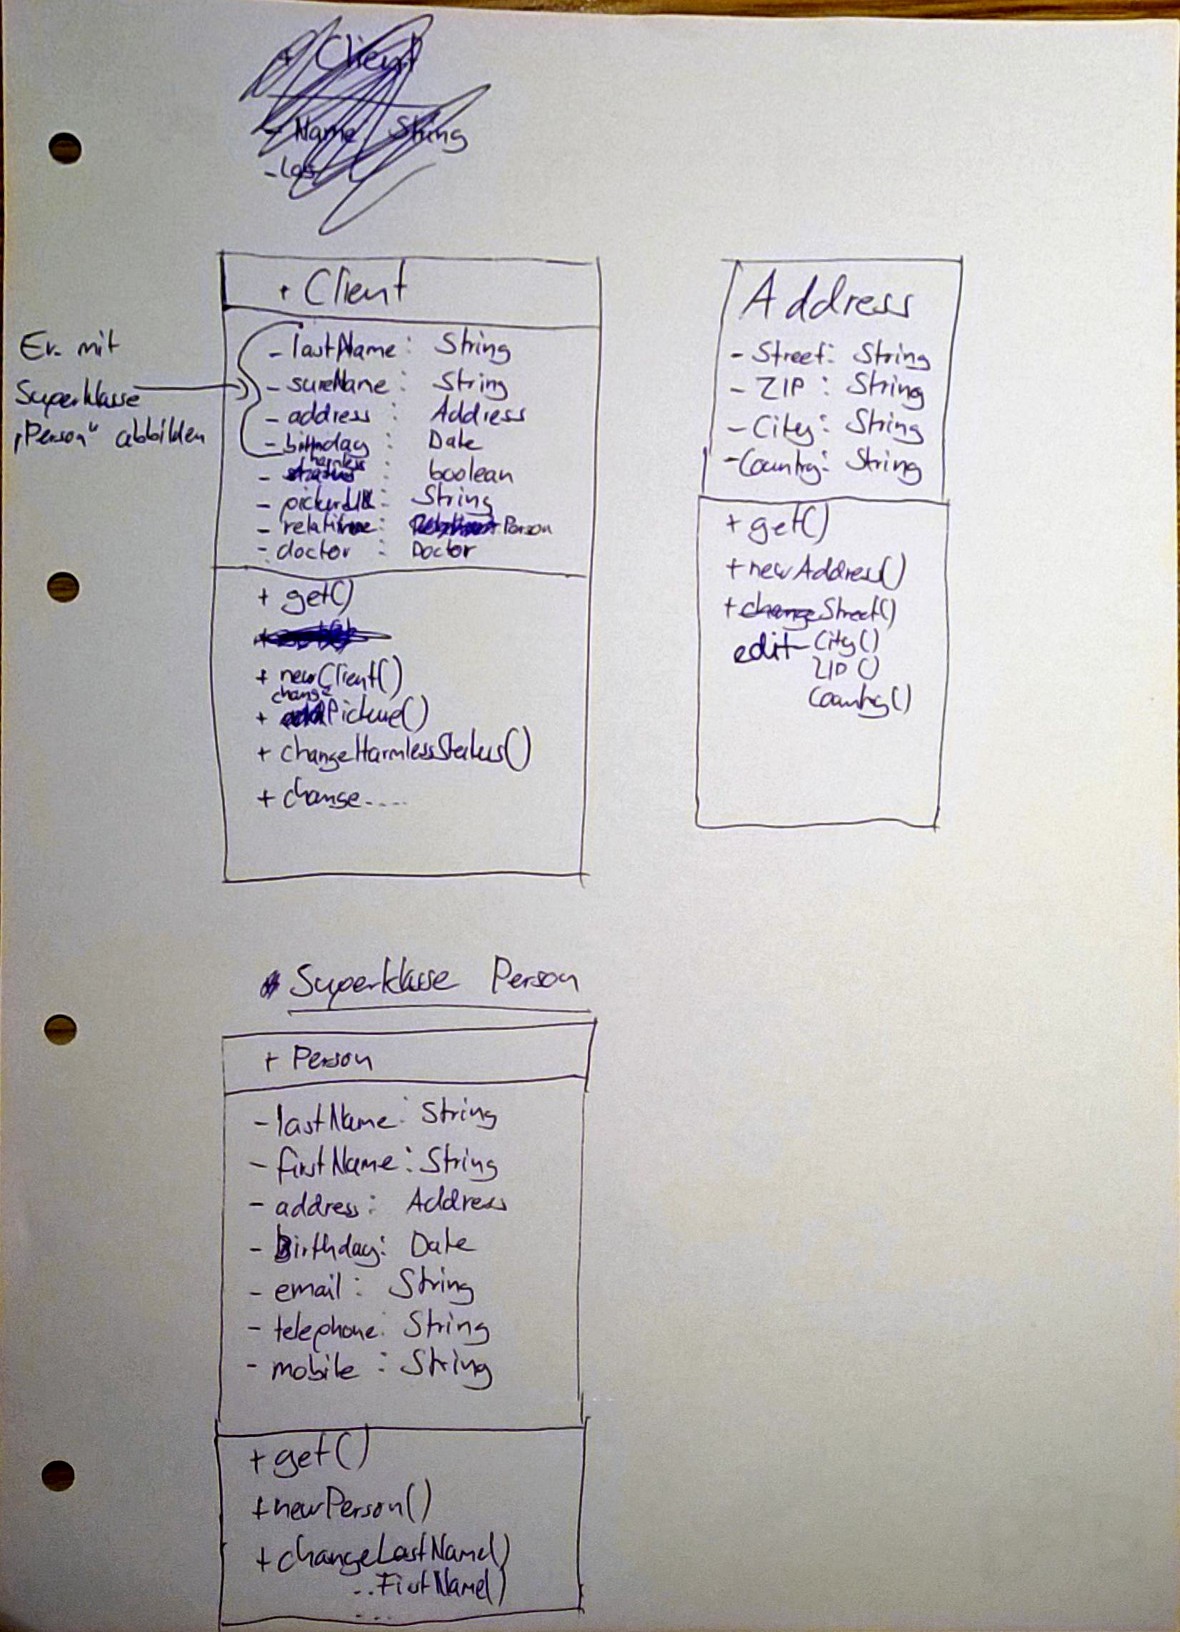 Client
- Name String
- las
+ Client
- lastName: String
- sureName: String
- address : Address
- birthday : Date
- harmless : boolean
- : String
- relative: Person
- doctor : Doctor
Ev. mit
Superklasse
„Person“ abbilden
+ get()
+ newClient()
change
+ Picture()
+ changeHarmlessStatus()
+ change....
Address
- Street: String
- ZIP : String
- City: String
- Country: String
+ get()
+ newAddress()
+ changeStreet()
edit City()
ZIP()
Country()
Superklasse Person
+ Person
- lastName: String
- firstName: String
- address: Address
- Birthday: Date
- email: String
- telephone: String
- mobile : String
+ get()
+ newPerson()
+ changeLastName()
..FirstName()
...